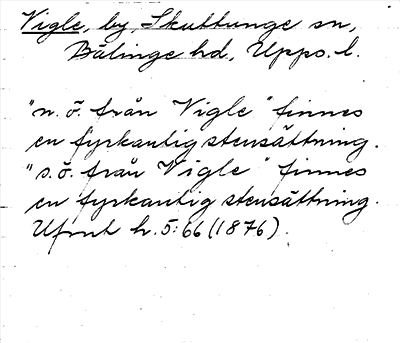 Vigle, by, Skuttunge sn,
Bälinge hd, Upps. l.
"n. ö. från Vigle" finnes
en fyrkantig stensättning.
"s. ö. från Vigle" finnes
en fyrkantig stensättning.
Ufmt h. 5:66 (1876).